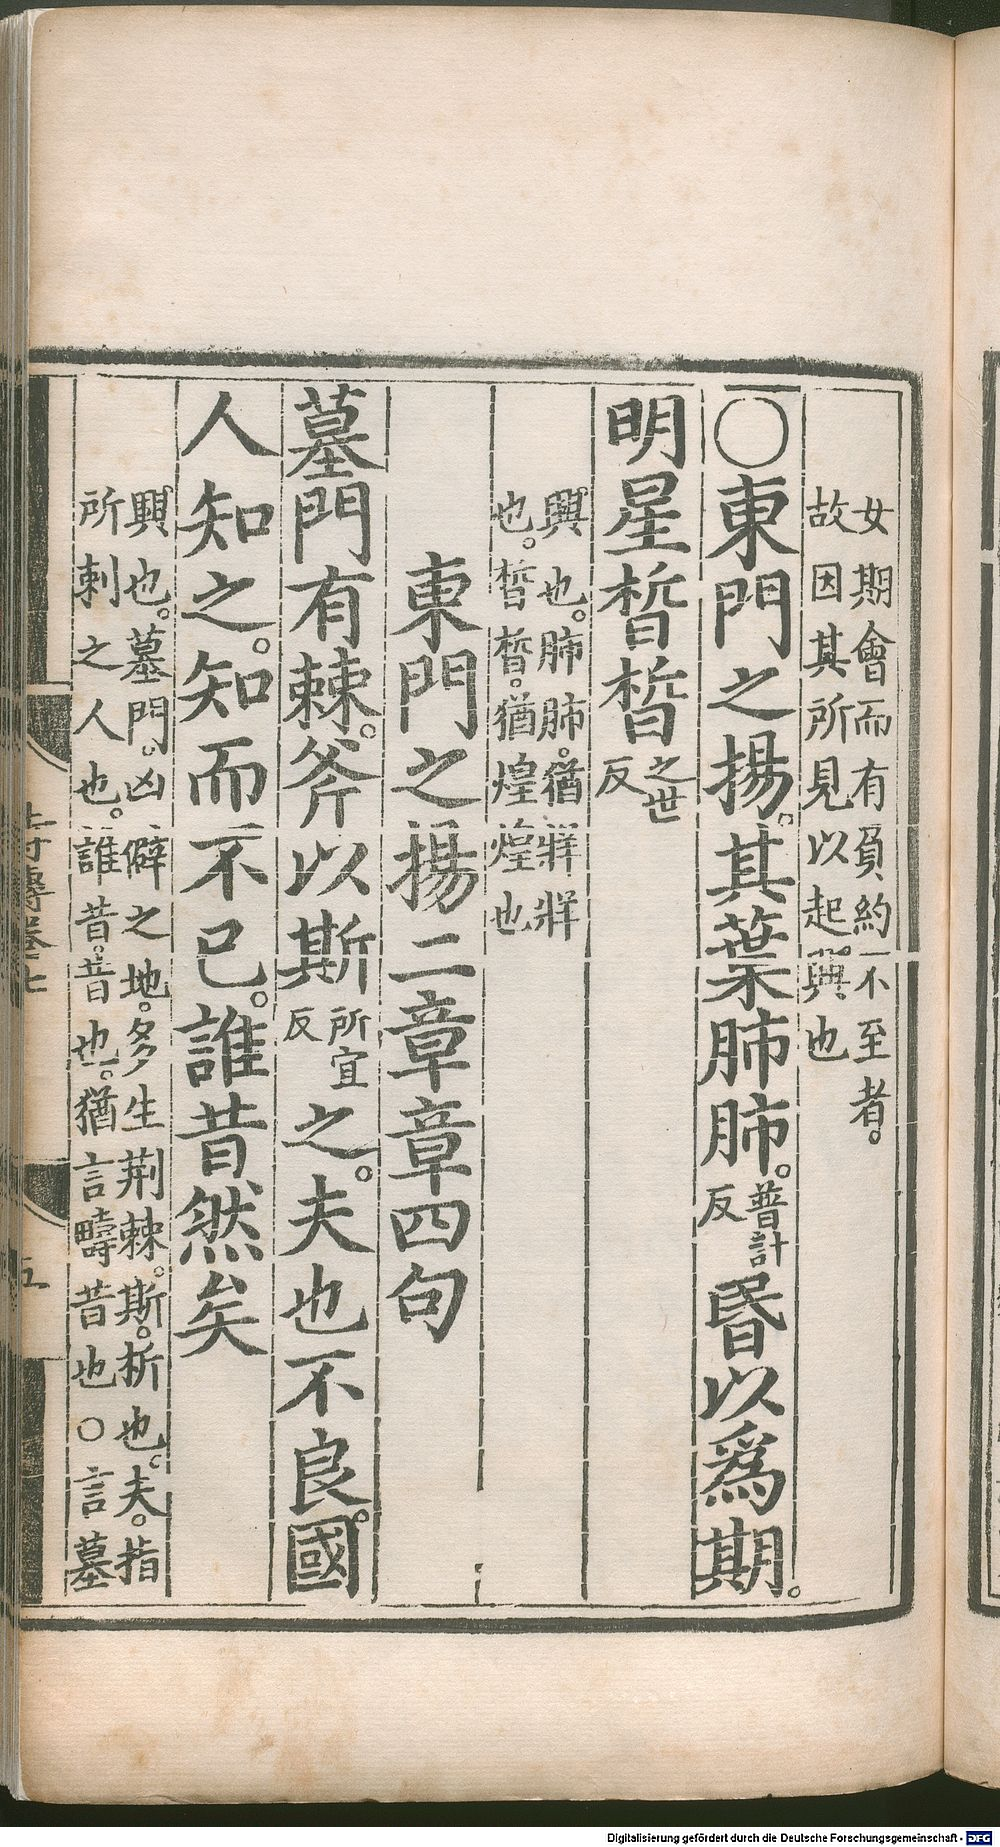 女期會而有負約不至者。
故因其所見以起興也
○東門之揚。其葉肺肺。普計反昬以爲期。
明星晢晢之世反
興也。肺肺。猶牂牂
也。晢晢。猶煌煌也
東門之揚二章章四句
墓門有棘。斧以斯所宜反之。夫也不良。國
人知之。知而不已。誰昔然矣
興也。墓門。凶僻之地。多生荆棘。斯。析也。夫。指
所刺之人也。誰昔。昔也。猶言疇昔也○言墓
詩傳卷七
五
Digitalisierung gefördert durch die Deutsche Forschungsgemeinschaft - DFG